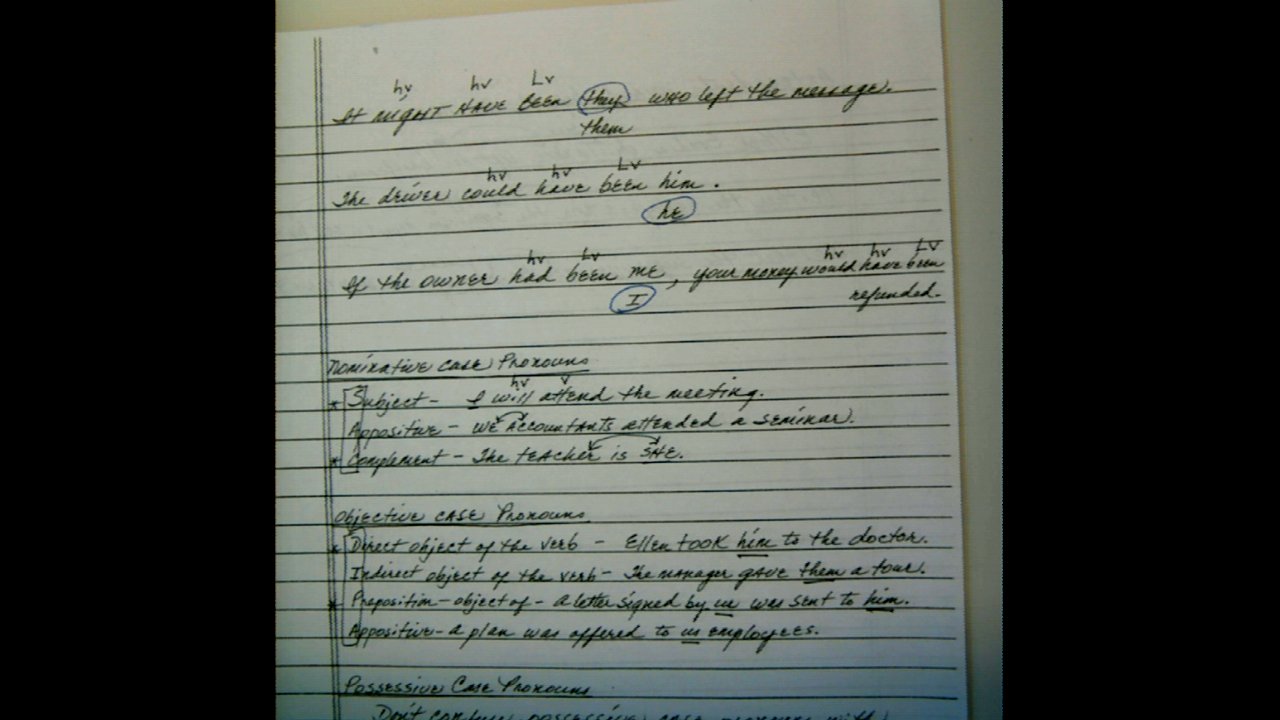 hv hv Lv
It might HAVE BEEN they who left the message.
them
hv hv Lv
The driver could have been him.
he
hv Lv hv hv LV
If the owner had been ME, your money would have been
I refunded.
Nominative Case Pronouns
hv v
* Subject - I will attend the meeting.
Appositive - WE Accountants attended a seminar.
* Complement - The teacher is SHE.
Objective CASE Pronouns
* Direct object of the verb - Ellen TOOK him to the doctor.
Indirect object of the verb - The manager gave them a tour.
* Preposition - object of - a letter signed by us was sent to him.
Appositive - a plan was offered to us employees.
Possessive Case Pronouns
Don't confuse possessive case pronouns with